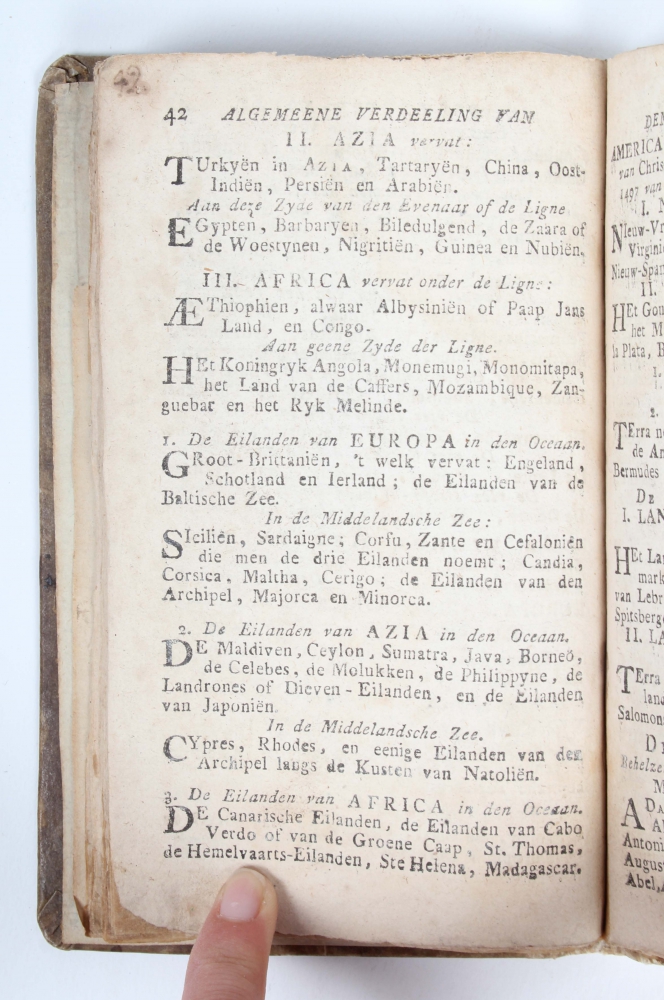 42.
42 ALGEMEENE VERDEELING VAN
II. AZIA vervat:
TUrkyën in AZIA, Tartaryën, China, Oost-
Indiën, Persiën en Arabiën.
Aan deze Zyde van den Evenaar of de Ligne
EGypten, Barbaryen, Biledulgend, de Zaara of
de Woestynen, Nigritiën, Guinea en Nubiën.
III. AFRICA vervat onder de Ligne:
ÆThiophien, alwaar Albysiniën of Paap Jans
Land, en Congo.
Aan geene Zyde der Ligne.
HEt Koningryk Angola, Monemugi, Monomitapa,
het Land van de Caffers, Mozambique, Zan-
guebar en het Ryk Melinde.
1. De Eilanden van EUROPA in den Oceaan.
GRoot-Brittaniën, 't welk vervat: Engeland,
Schotland en Ierland; de Eilanden van de
Baltische Zee.
In de Middelandsche Zee:
SIciliën, Sardaigne; Corfu, Zante en Cefaloniën
die men de drie Eilanden noemt; Candia,
Corsica, Maltha, Cerigo; de Eilanden van den
Archipel, Majorca en Minorca.
2. De Eilanden van AZIA in den Oceaan.
DE Maldiven, Ceylon, Sumatra, Java, Borneö,
de Celebes, de Molukken, de Philippyne, de
Landrones of Dieven-Eilanden, en de Eilanden
van Japoniën.
In de Middelandsche Zee.
CYpres, Rhodes, en eenige Eilanden van den
Archipel langs de Kusten van Natoliën.
3. De Eilanden van AFRICA in den Oceaan.
DE Canarische Eilanden, de Eilanden van Cabo
Verdo of van de Groene Caap, St. Thomas,
de Hemelvaarts-Eilanden, Ste Helena, Madagascar.
AMERICA
van Chris
1497 van
I. N
NIeuw-Vr
Virginie
Nieuw-Span
II.
HEt Gou
het M
la Plata, B
1.
2.
TErra no
de An
Bermudes
De
I. LAN
HEt La
mark
van Lebr
Spitsberge
II. LA
TErra
land
Salomon
Behelze
M
ADA
Antoni
Augus
Abel,